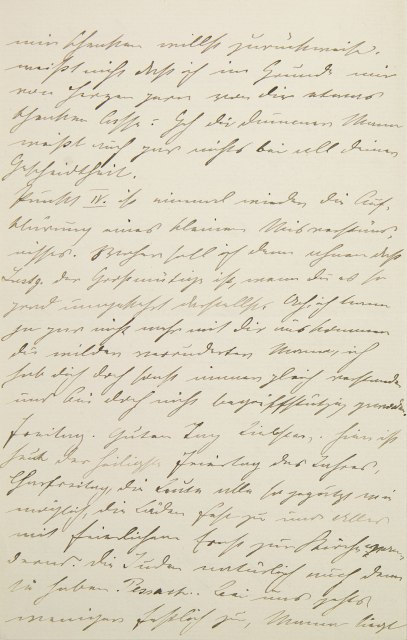 mir schenken willst zurückweise.
weißt nicht daß ich im Grunde nur
von Herzen gern von dir etwas
schenken lasse. Geh du dummer Mann
weißt auch gar nichts bei all deiner
Gescheidtheit.
Punkt IV. ist einmal wieder die Auf-
klärung eines kleinen Missverständ-
nisses. Woher soll ich denn ahnen daß
der Großmütige ist, wenn du es so
grad umgekehrt darstellst. Ach ich kann
ja gar nicht mehr mit dir auskommen
du wilder veränderter Mann, ich
hab dich doch sonst immer gleich verstanden
und bin doch nicht begriffstützig geworden.
Freitag. Guten Tag Liebster, hier ist
heut der heiligste Feiertag des Jahres,
Charfreitag, die Leute alle so geputzt wie
möglich, die Läden fest zu und alles
mit feierlichem Ernst zur Kirche
die Juden natürlich auch denn
sie haben Pessach. bei uns gehts
weniger festlich zu, Mama liegt